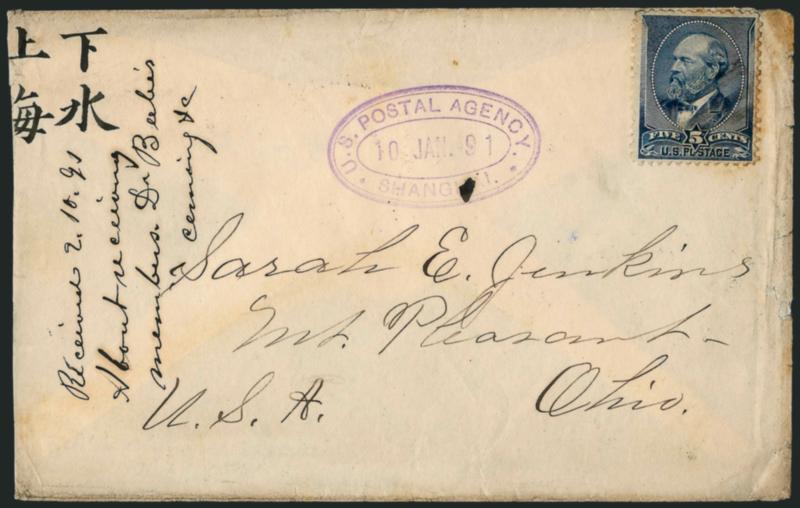 下水
上海
Received 2.10.91
About receiving
members. Dr Beebe's
coming &c
U.S. POSTAL AGENCY.
10 JAN. 91
SHANGHAI.
FIVE 5 CENTS
U.S. POSTAGE
Sarah E. Jenkins
Mt. Pleasant-
Ohio.
U. S. A.